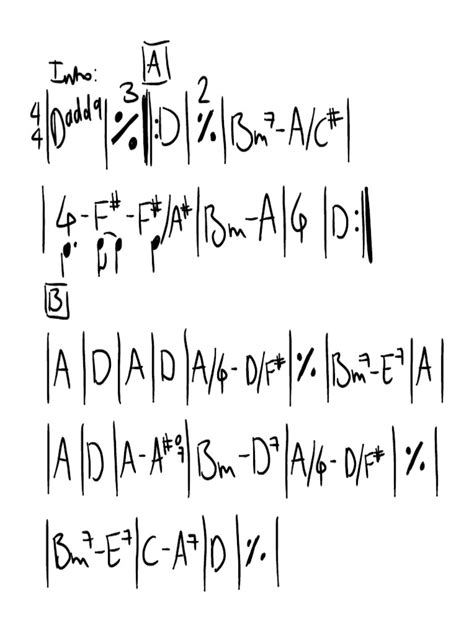 Intro: A
4/4 |Dadd9 | 3 𝄎 ‖: D | 2 𝄎 | Bm7 - A/C# |
| G - F# - F#/A# | Bm - A | G | D :‖
B
| A | D | A | D | A/G - D/F# | 𝄎 | Bm7 - E7 | A |
| A | D | A - A#o7 | Bm - D7 | A/G - D/F# | 𝄎 |
| Bm7 - E7 | C - A7 | D | 𝄎 |